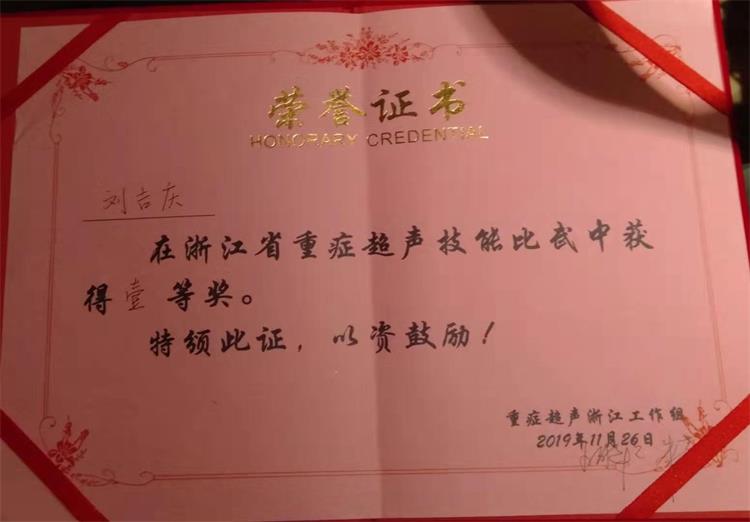 荣誉证书
HONORARY CREDENTIAL
刘吉庆
在浙江省重症超声技能比武中获
得壹等奖。
特颁此证，以资鼓励！
重症超声浙江工作组
2019年11月26日